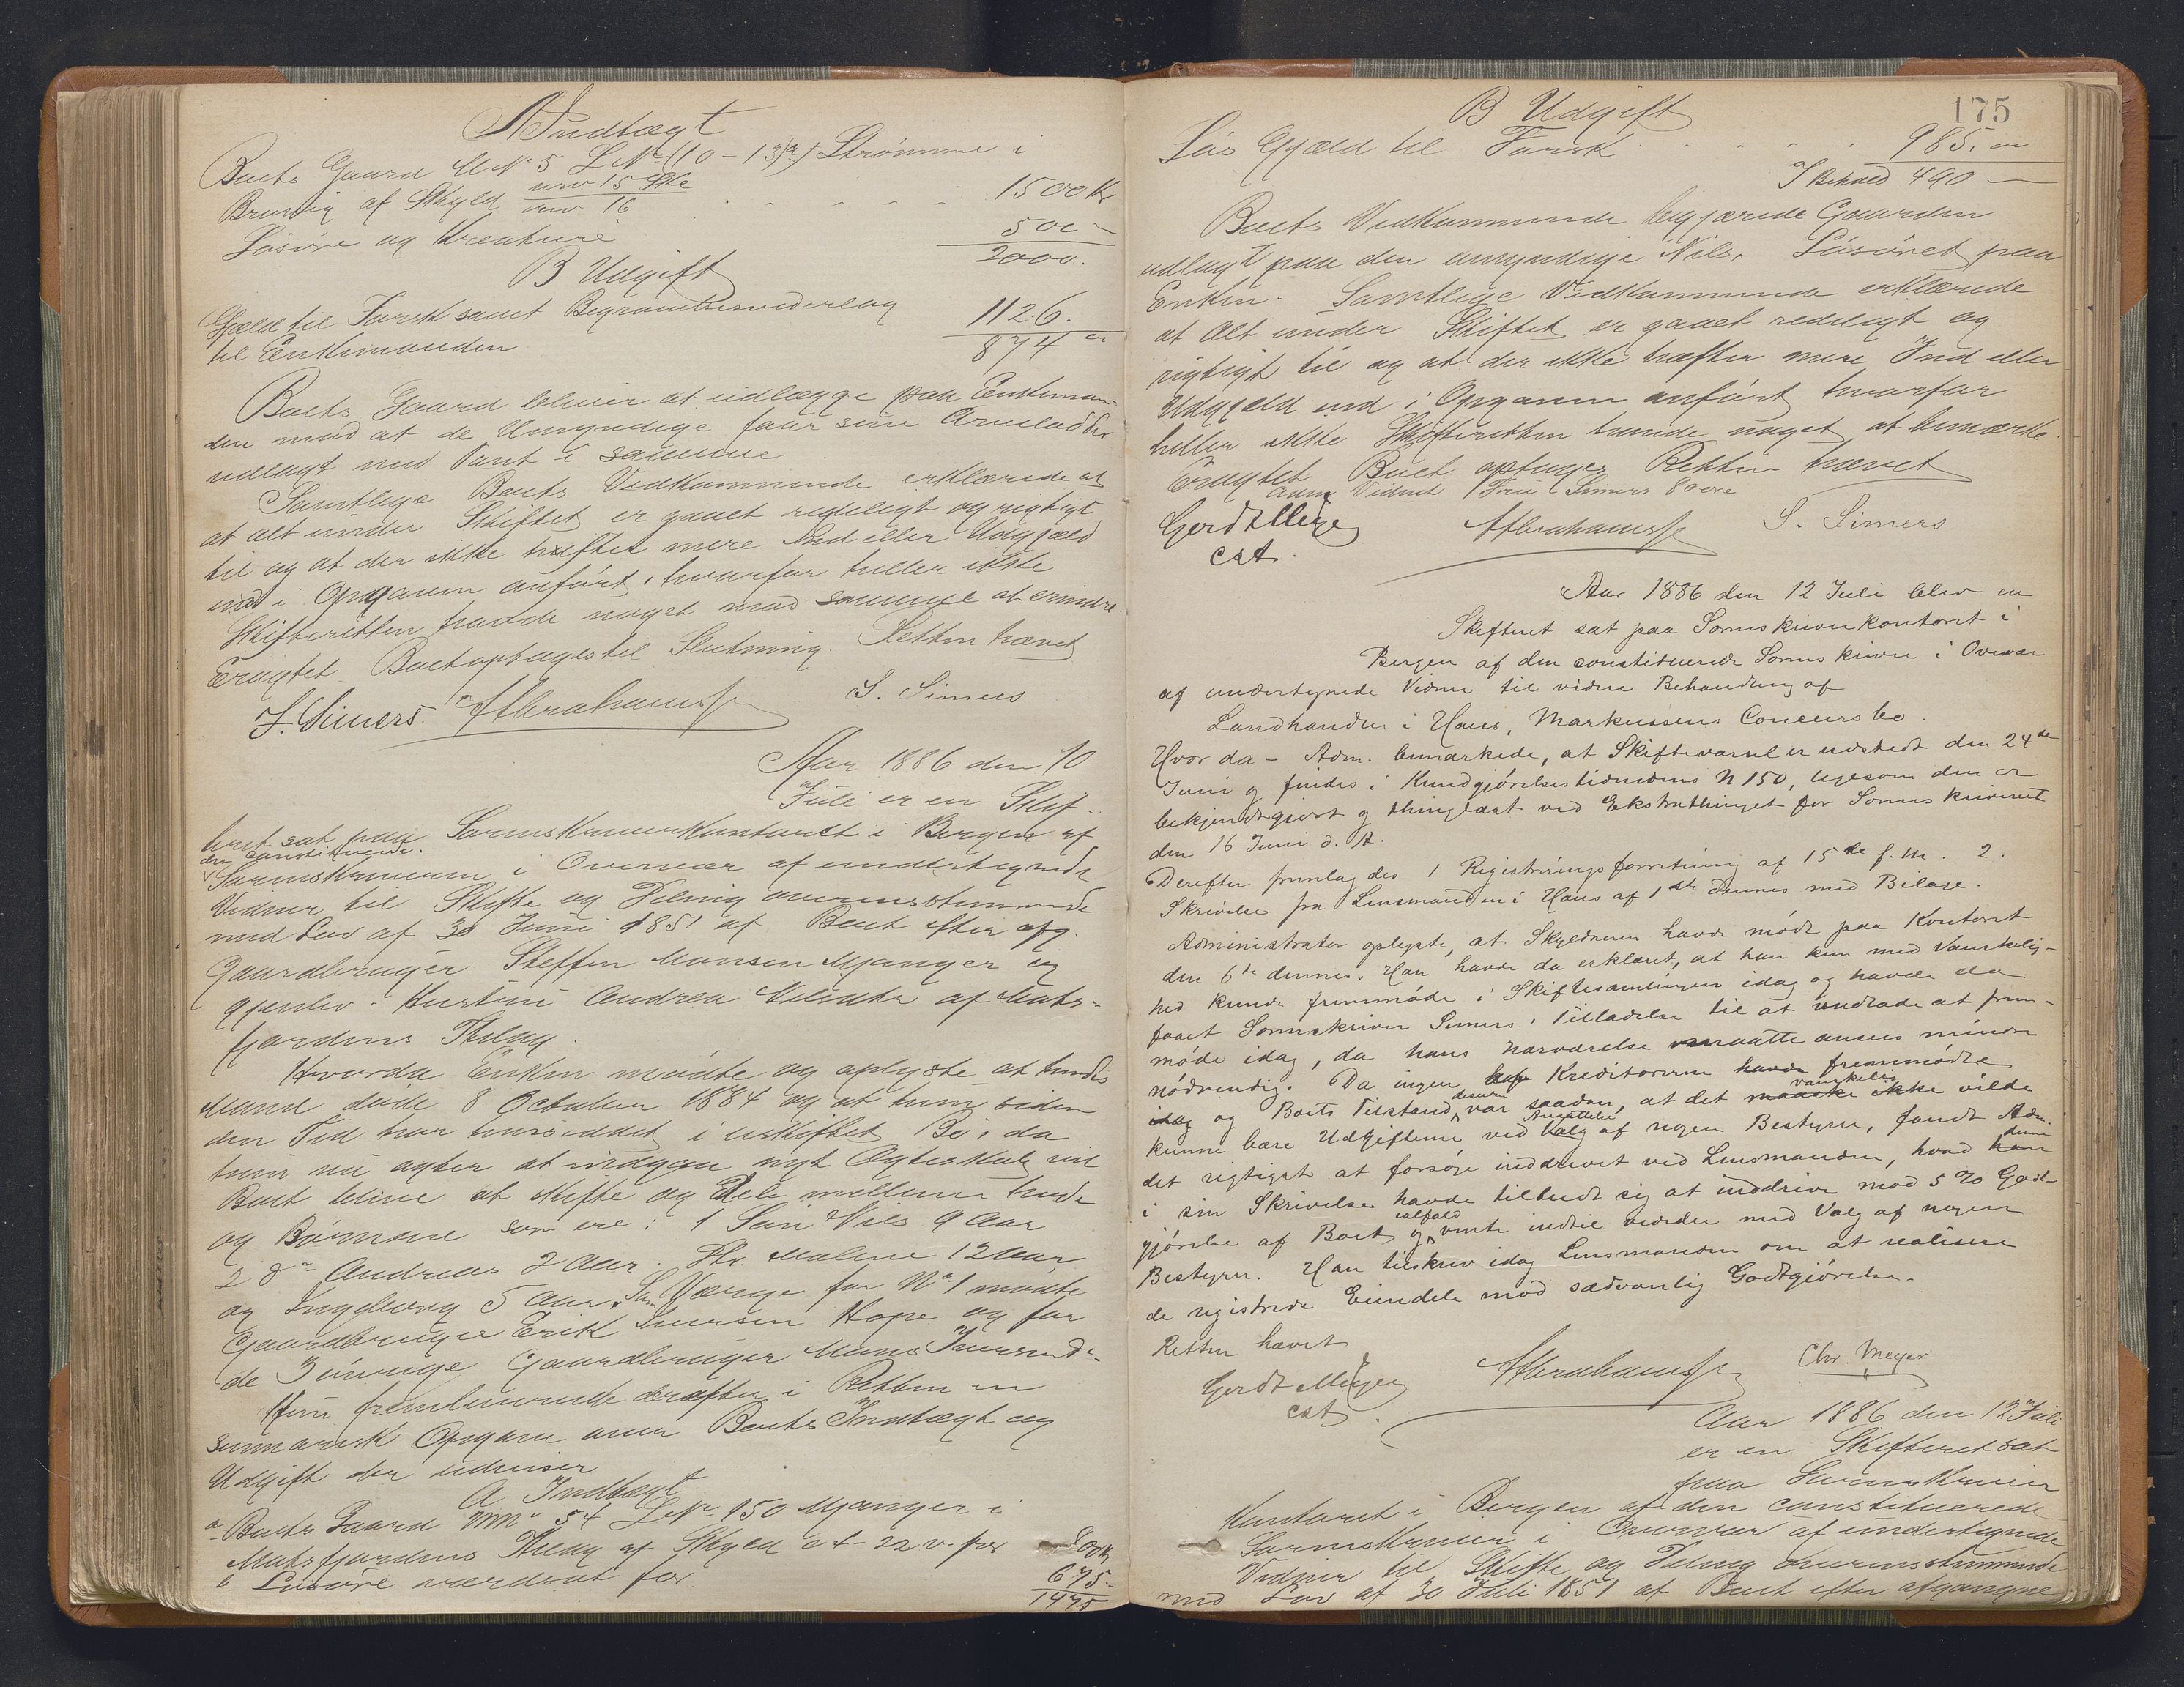 A Indtægt
Boets Gaard M N 5 L N (10-13a) Strømme i
Bruvig af Skyld urv 15 Ske 1500 Kr
urv. 16
Løsøre og Kreature 500 -
2000.
B Udgift
Gjæld til Forsk samt Begravelsesvederlag 1126.
til Enkemanden 874 "
Boets Gaard bliver at udlægge paa Enkeman-
den mod at de Umyndige faar sine Arvelodder
udlagt med Pant i samme
Samtlige Boets Vedkommende erklærede at
at alt under Skiftet er gaaet redeligt og rigtigt
til og at der ikke hæfter mere Ind eller Udgjæld
end i Opgaven anført, hvorfor heller ikke
Skifteretten havde noget mod samme at erindre.
Eragtet Boet optages til Slutning. Retten hævet
J. Simers. Abrahamsen S. Simers
Aar 1886 den 10
Juli er en Skif-
teret sat paa Sorenskriverkontoret i Bergen af
den constituerede
Sorenskriveren i Overvær af undertegnede
Vidner til Skifte og Deling overensstemmende
med Lov af 30 Juni 1851 af Boet efter afg.
Gaardbruger Steffen Monsen Mjanger og
gjenlev. Hustru Andrea Nilsdtr af Mats-
fjordens Thlag.
Hvorda Enken mødte og oplyste at hendes
Mand døde 8 October 1884 og at hun siden
den Tid har hensiddet i uskiftet Bo, da
hun nu agter at indgaa nyt Ægteskab vil
Boet blive at skifte og dele mellem hende
og Børnene som ere: 1 Søn Nils 9 Aar
2 do Andreas 2 Aar. Dtr. Malene 12 Aar
og Ingeborg 5 Aar. Som Værge for No 1 mødte
Gaardbruger Erik Iversen Hope og for
de 3 øvrige Gaardbruger Mons Iversen do.
Hun fremleverede derefter i Retten en
summarisk Opgave over Boets Indtægt og
Udgift der udviser
A Indtægt
a Boets Gaard M N 54 L N 150 Mjanger i
Matsfjordens Thlag af Skyld 2 f - 22 v. for 800 Kr
b Løsøre værdsat for 675.
1475
175
B Udgift
Løs Gjæld til Forsk 985. "
I Behold 490 -
Boets Vedkommende begjærede Gaarden
udlagt paa den umyndige Nils. Løsøret paa
Enken. Samtlige Vedkommende erklærede
at Alt under Skiftet er gaaet redeligt og
rigtigt til og at der ikke hæfter mere Ind eller
Udgjæld end i Opgaven anført hvorfor
heller ikke Skifteretten havde noget at bemærke.
Eragtet Boet optages Retten hævet
Vidnet Simers 80 øre
Gerdt Meyer Abrahamsen S. Simers
cst.
Aar 1886 den 12 Juli blev en
Skifteret sat paa Sorenskriverkontoret i
Bergen af den constituerede Sorenskriver i Overvær
af undertegnede Vidner til videre Behandling af
Landhandler i Haus, Markussens Concursbo.
Hvor da - Adm. bemærkede, at Skiftevarsel er udstedt den 24de
Juni og findes i Kundgjørelsestidendens N 150, ligesom den er
bekjendtgjort og thinglæst ved Ekstrathinget for Sorenskriveriet
den 16 Juni d. A.
Derefter fremlagdes 1 Registreringsforretning af 15de f. M. 2.
Skrivelse fra Lensmanden i Haus af 1ste dennes med Bilage.
Administrator oplyste, at Skyldneren havde mødt paa Kontoret
den 6te dennes. Han havde da erklæret, at han kun med Vanskelig-
hed kunde fremmøde i Skiftesamlingen idag og havde da
faaet Sorenskriver Simers' Tilladelse til at undlade at frem-
møde idag, da hans Nærværelse maatte ansees mindre
nødvendig. Da ingen Kreditorerne havde fremmødte
idag og Boets Tilstand desuden var saadan, at det maaske ikke vanskelig vilde
kunne bære Udgifterne ved Ansættelse Valg af nogen Bestyrer, fandt Adm.
det rigtigst at forsøge inddrevet ved Lensmanden, hvad han denne
i sin Skrivelse havde tilbudt sig at inddrive mod 5 % Godt-
gjørelse af Boet og ialfald vente indtil videre med Valg af nogen
Bestyrer. Han tilskrev idag Lensmanden om at realisere
de registrerede Eiendele mod sædvanlig Godtgjørelse.
Retten hævet
Gerdt Meyer Abrahamsen Chr. Meyer
cst.
Aar 1886 den 12 Juli
er en Skifteret sat
paa Sorenskriver
Kontoret i Bergen af den constituerede
Sorenskriver i Overvær af undertegnede
Vidner til Skifte og Deling overensstemmende
med Lov af 30 Juli 1851 af Boet efter afgangne